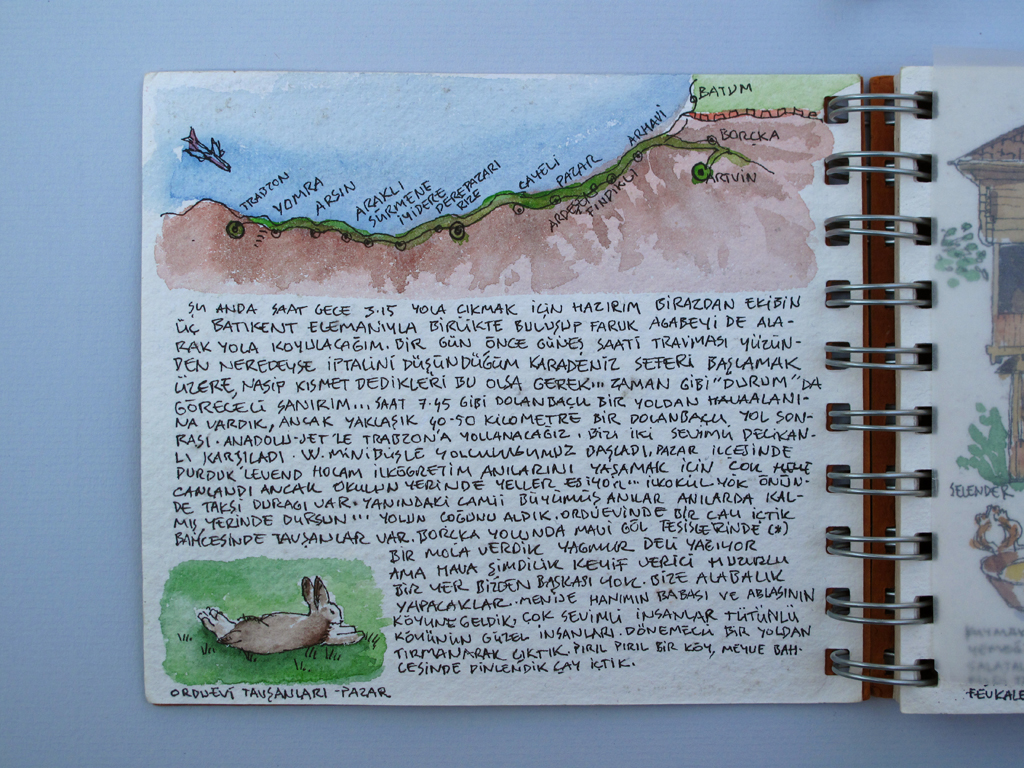 BATUM
BORÇKA
ARTVİN
ARHAVİ
FINDIKLI
ARDEŞEN
PAZAR
ÇAYELİ
RİZE
DEREPAZARI
İYİDERE
SÜRMENE
ARAKLI
ARSIN
YOMRA
TRABZON
ŞU ANDA SAAT GECE 3.15 YOLA ÇIKMAK İÇİN HAZIRIM BİRAZDAN EKİBİN
ÜÇ BATIKENT ELEMANIYLA BİRLİKTE BULUŞUP FARUK AGABEYİ DE ALA-
RAK YOLA KOYULACAĞIM. BİR GÜN ÖNCE GÜNEŞ SAATİ TRAVMASI YÜZÜN-
DEN NEREDEYSE İPTALİNİ DÜŞÜNDÜĞÜM KARADENİZ SEFERİ BAŞLAMAK
ÜZERE, NASİP KISMET DEDİKLERİ BU OLSA GEREK... ZAMAN GİBİ "DURUM" DA
GÖRECELİ SANIRIM... SAAT 7.45 GİBİ DOLANBAÇLI BİR YOLDAN HAVAALANI-
NA VARDIK, ANCAK YAKLAŞIK 40-50 KİLOMETRE BİR DOLANBAÇLI YOL SON-
RASI. ANADOLU-JET'LE TRABZON'A YOLLANACAĞIZ. BİZİ İKİ SEVİMLİ DELİKAN-
LI KARŞILADI. W. MİNİBÜSLE YOLCULUĞUMUZ BAŞLADI, PAZAR İLÇESİNDE
DURDUK LEVEND HOCAM İLKÖGRETİM ANILARINI YAŞAMAK İÇİN ÇOK
CANLANDI ANCAK OKULUN YERİNDE YELLER ESİYOR... İLKOKUL YOK ÖNÜN-
DE TAKSİ DURAGI VAR. YANINDAKİ CAMİİ BÜYÜMÜŞ ANILAR ANILARDA KAL-
MIŞ YERİNDE DURSUN... YOLUN ÇOĞUNU ALDIK. ORDUEVİNDE BİR ÇAY İÇTİK
BAHÇESİNDE TAVŞANLAR VAR. BORÇKA YOLUNDA MAVİ GÖL TESİSLERİNDE (*)
BİR MOLA VERDİK YAGMUR DELİ YAGIYOR
AMA HAVA ŞİMDİLİK KEYİF VERİCİ HUZURLU
BİR YER BİZDEN BAŞKASI YOK. BİZE ALABALIK
YAPACAKLAR. MENİJE HANIMIN BABASI VE ABLASININ
KÖYÜNE GELDİK, ÇOK SEVİMLİ İNSANLAR TÜTÜNLÜ
KÖYÜNÜN GÜZEL İNSANLARI. DÖNEMEÇLİ BİR YOLDAN
TIRMANARAK ÇIKTIK. PIRIL PIRIL BİR KÖY, MEYVE BAH-
ÇESİNDE DİNLENDİK ÇAY İÇTİK.
ORDUEVİ TAVŞANLARI - PAZAR
SELENDER